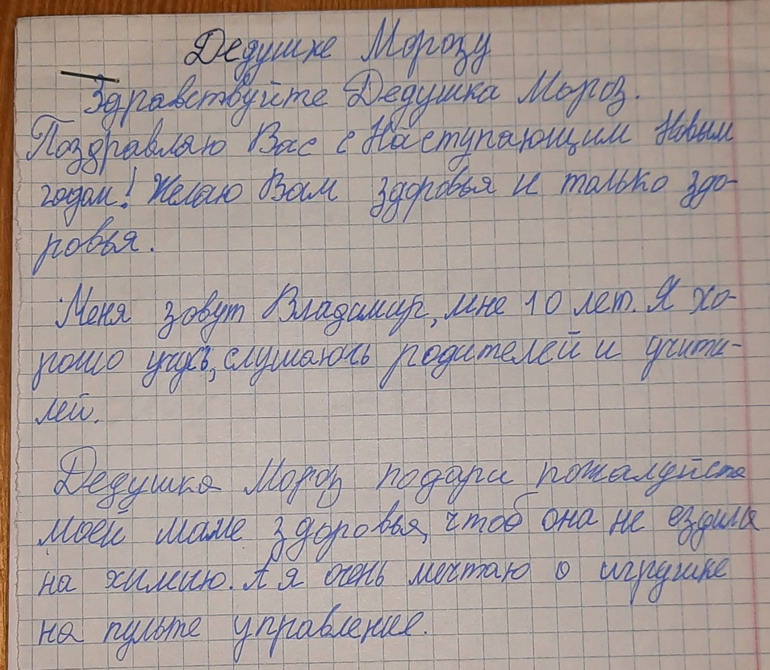 Дедушке Морозу
Здравствуйте Дедушка Мороз.
Поздравляю Вас с Наступающим Новым
годом! Желаю Вам здоровья и только здо-
ровья.
Меня зовут Владимир, мне 10 лет. Я хо-
рошо учусь, слушаюсь родителей и учити-
лей.
Дедушка Мороз подари пожалуйста
моей маме здоровья, чтоб она не ездила
на химию. А я очень мечтаю о игрушке
на пульте управление.